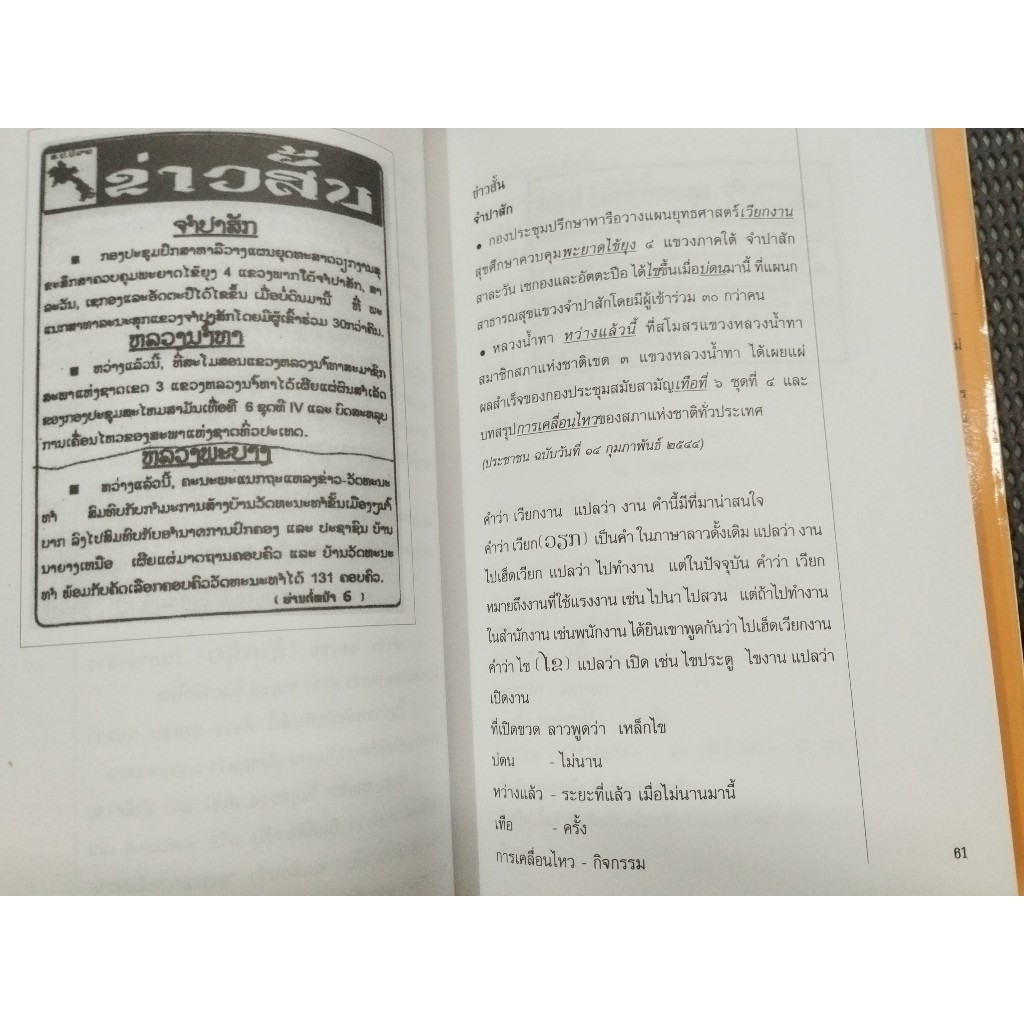 ຂ່າວສັ້ນ
ຈຳປາສັກ
■ ກອງປະຊຸມປຶກສາຫາລືວາງແຜນຍຸດທະສາດວຽກງານສຸ
ຂະສຶກສາຄວບຄຸມພະຍາດໄຂ້ຍຸງ 4 ແຂວງພາກໃຕ້ຈຳປາສັກ, ສາ
ລະວັນ, ເຊກອງແລະອັດຕະປືໄດ້ໄຂຂຶ້ນ ເມື່ອບໍ່ດົນມານີ້ ທີ່ ພະ
ແນກສາທາລະນະສຸກແຂວງຈຳປາສັກໂດຍມີຜູ້ເຂົ້າຮ່ວມ 30ກວ່າຄົນ.
ຫລວງນ້ຳທາ
■ ຫວ່າງແລ້ວນີ້, ທີ່ສະໂມສອນແຂວງຫລວງນ້ຳທາສະມາຊິກ
ສະພາແຫ່ງຊາດເຂດ 3 ແຂວງຫລວງນ້ຳທາໄດ້ເຜີຍແຜ່ຜົນສຳເລັດ
ຂອງກອງປະຊຸມສະໄຫມສາມັນເທື່ອທີ 6 ຊຸດທີ IV ແລະ ບົດສະຫລຸບ
ການເຄື່ອນໄຫວຂອງສະພາແຫ່ງຊາດທົ່ວປະເທດ.
ຫລວງພະບາງ
■ ຫວ່າງແລ້ວນີ້, ຄະນະພະແນກຖະແຫລງຂ່າວ-ວັດທະນະ
ທຳ ສົມທົບກັບກຳມະການສ້າງບ້ານວັດທະນະທຳຂັ້ນເມືອງງາ
ບາກ ລົງໄປສົມທົບກັບອຳນາດການປົກຄອງ ແລະ ປະຊາຊົນ ບ້ານ
ນາຍາງເຫນືອ ເຜີຍແຜ່ມາດຖານຄອບຄົວ ແລະ ບ້ານວັດທະນະ
ທຳ ພ້ອມກັບຄັດເລືອກຄອບຄົວວັດທະນະທຳໄດ້ 131 ຄອບຄົວ.
( ອ່ານຕໍ່ຫນ້າ 6 )
ข่าวสั้น
จำปาสัก
• กองประชุมปรึกษาหารือวางแผนยุทธศาสตร์เวียกงาน
สุขศึกษาควบคุมพะยาดไข้ยุง ๔ แขวงภาคใต้ จำปาสัก
สาละวัน เซกองและอัตตะปือ ได้ไขขึ้นเมื่อบ่ดนมานี้ ที่แผนก
สาธารณสุขแขวงจำปาสักโดยมีผู้เข้าร่วม ๓๐ กว่าคน
• หลวงน้ำทา หว่างแล้วนี้ ที่สโมสรแขวงหลวงน้ำทา
สมาชิกสภาแห่งชาติเขต ๓ แขวงหลวงน้ำทา ได้เผยแผ่
ผลสำเร็จของกองประชุมสมัยสามัญเทือที่ ๖ ชุดที่ ๔ และ
บทสรุปการเคลื่อนไหวของสภาแห่งชาติทั่วประเทศ
(ประชาชน ฉบับวันที่ ๑๔ กุมภาพันธ์ ๒๕๔๔)
คำว่า เวียกงาน แปลว่า งาน คำนี้มีที่มาน่าสนใจ
คำว่า เวียก(ວຽກ) เป็นคำ ในภาษาลาวดั้งเดิม แปลว่า งาน
ไปเฮ็ดเวียก แปลว่า ไปทำงาน แต่ในปัจจุบัน คำว่า เวียก
หมายถึงงานที่ใช้แรงงาน เช่น ไปนา ไปสวน แต่ถ้าไปทำงาน
ในสำนักงาน เช่นพนักงาน ได้ยินเขาพูดกันว่า ไปเฮ็ดเวียกงาน
คำว่า ไข (ໄຂ) แปลว่า เปิด เช่น ไขประตู ไขงาน แปลว่า
เปิดงาน
ที่เปิดขวด ลาวพูดว่า เหล็กไข
บ่ดน - ไม่นาน
หว่างแล้ว - ระยะที่แล้ว เมื่อไม่นานมานี้
เทือ - ครั้ง
การเคลื่อนไหว - กิจกรรม
61